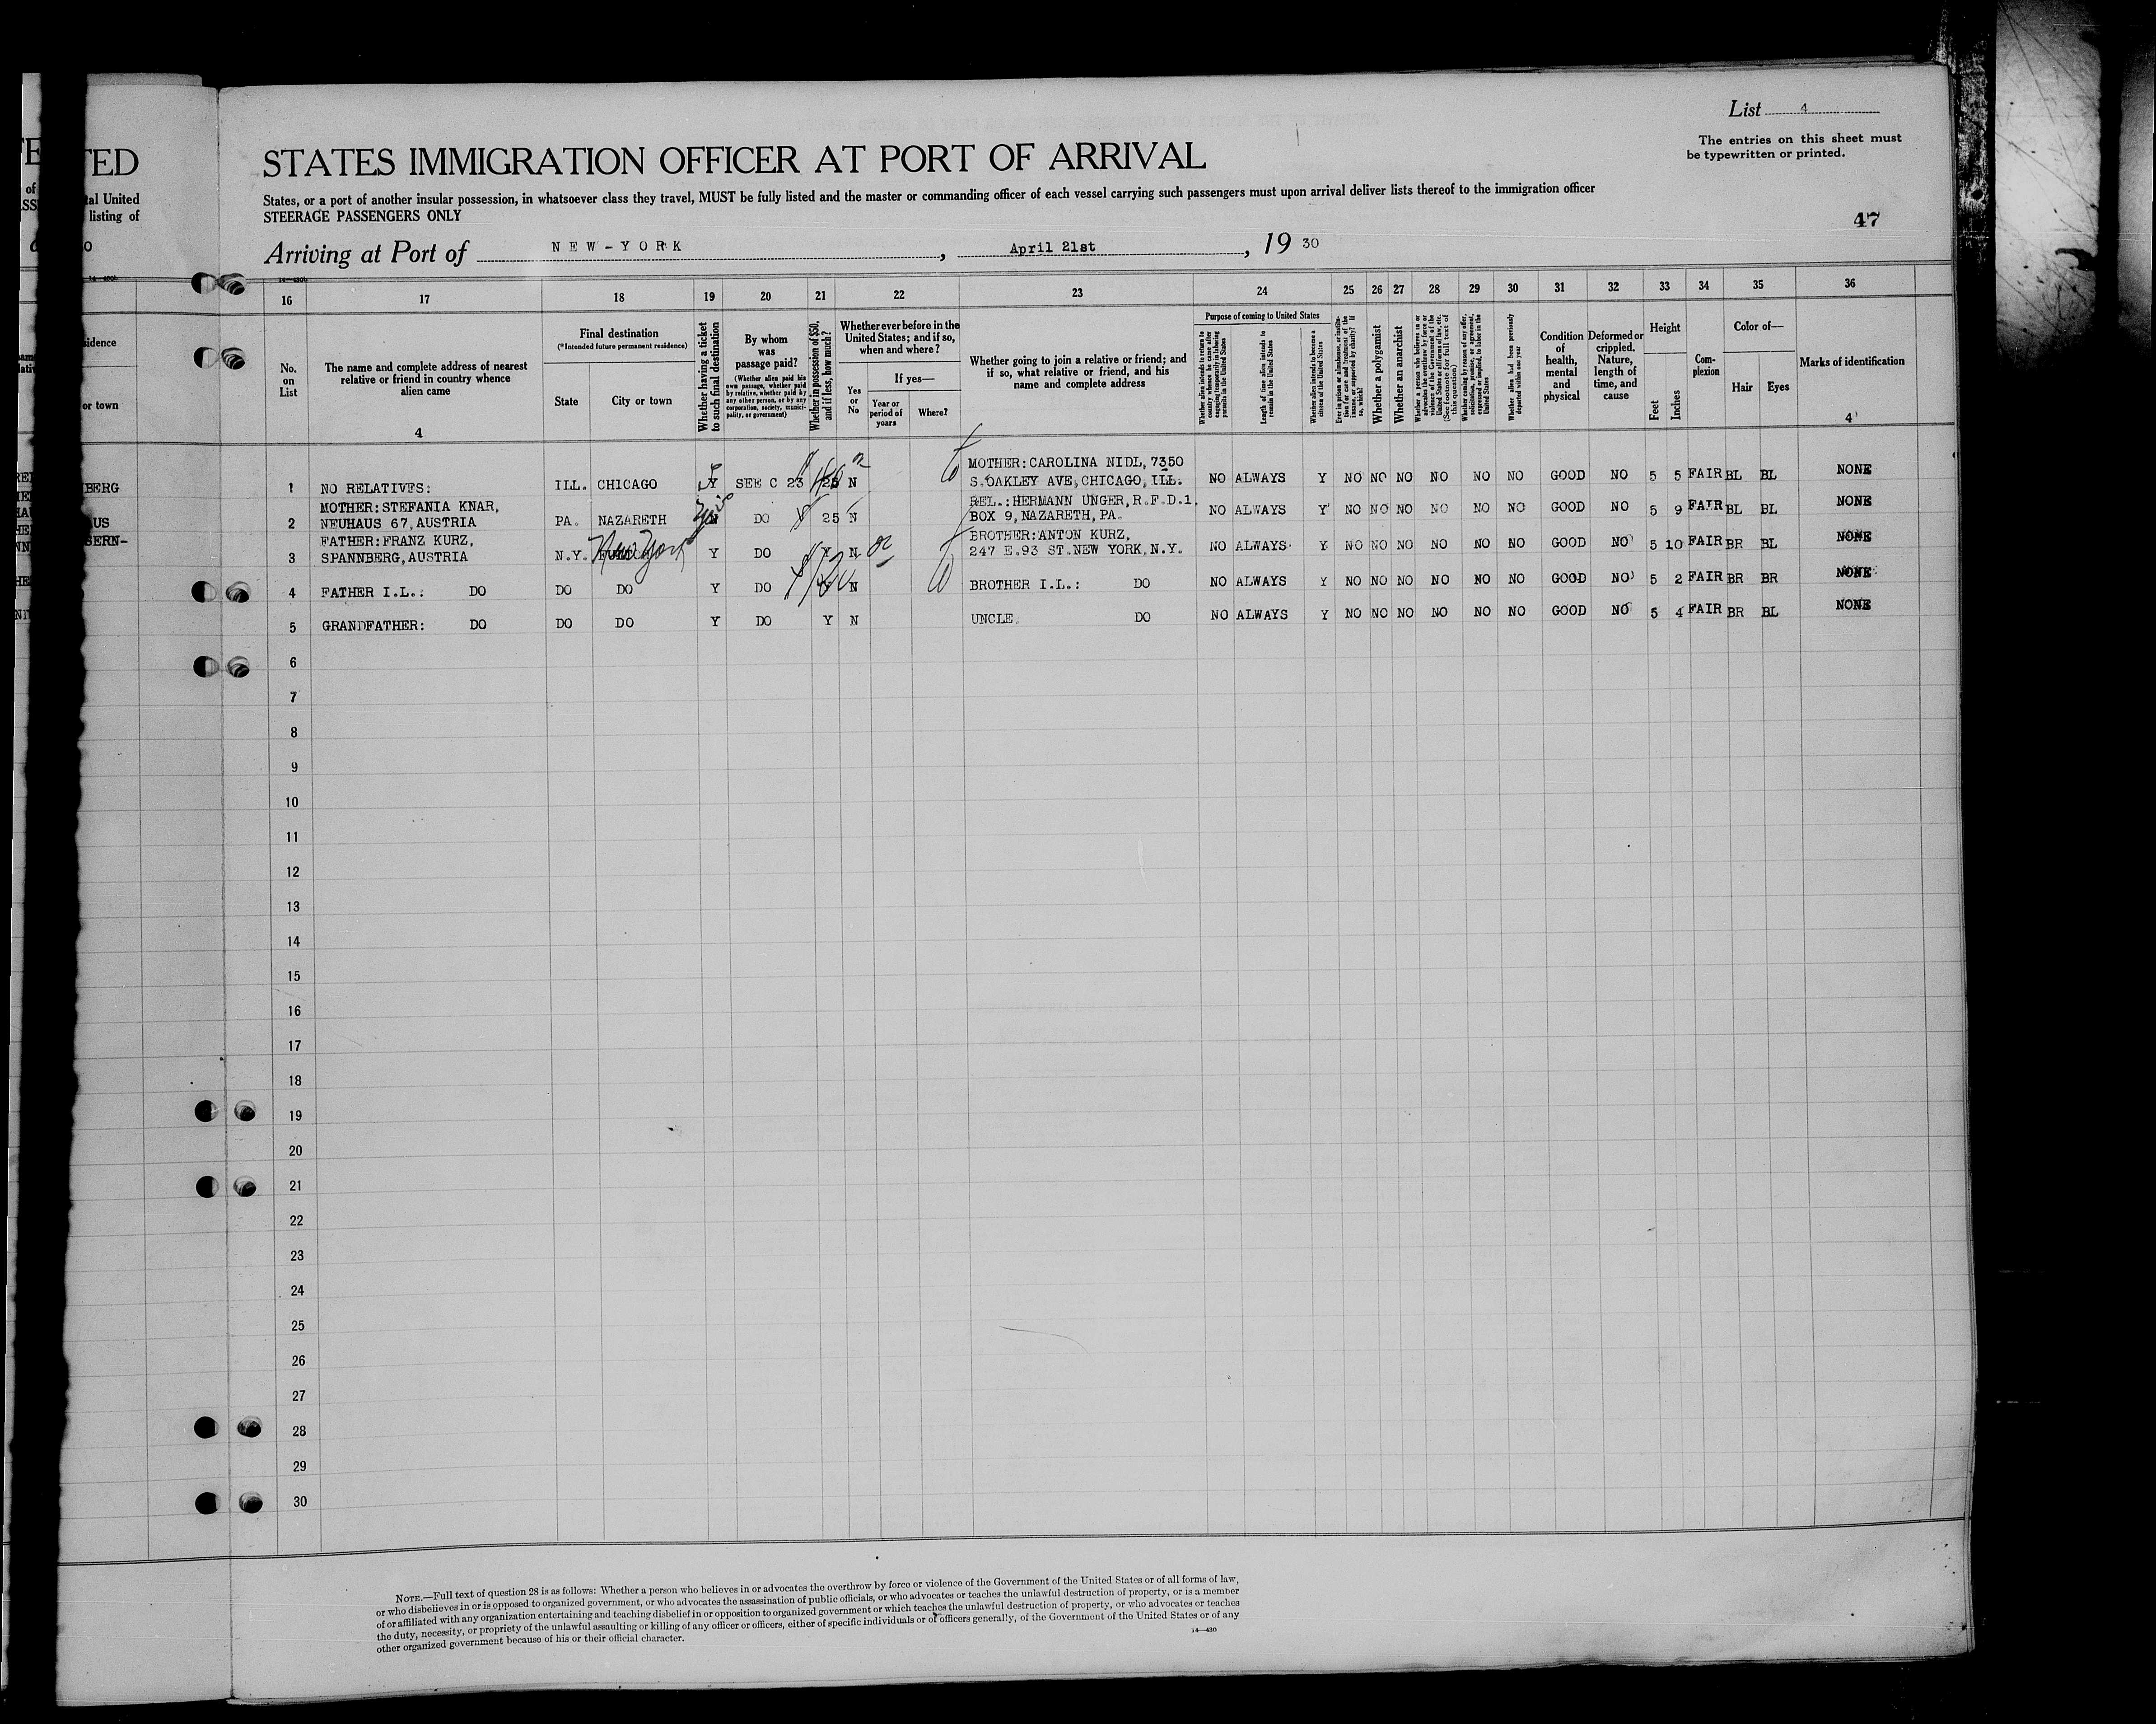 List 4
The entries on this sheet must
be typewritten or printed.
TED
STATES IMMIGRATION OFFICER AT PORT OF ARRIVAL
tal United
listing of
States, or a port of another insular possession, in whatsoever class they travel, MUST be fully listed and the master or commanding officer of each vessel carrying such passengers must upon arrival deliver lists thereof to the immigration officer
STEERAGE PASSENGERS ONLY
47
Arriving at Port of NEW-YORK, April 21st, 19 30
16 17 18 19 20 21 22 23 24 25 26 27 28 29 30 31 32 33 34 35 36
No. on List
The name and complete address of nearest relative or friend in country whence alien came
4
Final destination
(*Intended future permanent residence)
State
City or town
Whether having a ticket to such final destination
By whom was passage paid?
(Whether alien paid his own passage, whether paid by relative, whether paid by any other person, or by any corporation, society, municipality, or government)
Whether in possession of $50, and if less, how much?
Whether ever before in the United States; and if so, when and where?
Yes or No
If yes—
Year or period of years
Where?
Whether going to join a relative or friend; and if so, what relative or friend, and his name and complete address
Purpose of coming to United States
Whether alien intends to return to country whence he came after engaging temporarily in laboring pursuits in the United States
Length of time alien intends to remain in the United States
Whether alien intends to become a citizen of the United States
Ever in prison or almshouse, or institution for care and treatment of the insane, or supported by charity? If so, which?
Whether a polygamist
Whether an anarchist
Whether a person who believes in or advocates the overthrow by force or violence of the Government of the United States or all forms of law, etc. (See footnote for full text of this question)
Whether coming by reason of any offer, solicitation, promise, or agreement, expressed or implied, to labor in the United States
Whether alien had been previously deported within one year
Condition of health, mental and physical
Deformed or crippled. Nature, length of time, and cause
Height
Feet
Inches
Complexion
Color of—
Hair
Eyes
Marks of identification
4
idence
or town
BERG
1 NO RELATIVES: ILL. CHICAGO Y SEE C 23 25 N MOTHER:CAROLINA NIDL, 7350 S.OAKLEY AVE, CHICAGO, ILL. NO ALWAYS Y NO NO NO NO NO NO GOOD NO 5 5 FAIR BL BL NONE
AUS
2 MOTHER:STEFANIA KNAR, NEUHAUS 67, AUSTRIA PA. NAZARETH yes DO 25 N REL.:HERMANN UNGER, R.F.D.1, BOX 9, NAZARETH, PA. NO ALWAYS Y NO NO NO NO NO NO GOOD NO 5 9 FAIR BL BL NONE
BERN-
3 FATHER:FRANZ KURZ, SPANNBERG, AUSTRIA N.Y. New York Y DO Y N BROTHER:ANTON KURZ, 247 E.93 ST. NEW YORK, N.Y. NO ALWAYS Y NO NO NO NO NO NO GOOD NO 5 10 FAIR BR BL NONE
4 FATHER I.L.: DO DO DO Y DO N BROTHER I.L.: DO NO ALWAYS Y NO NO NO NO NO NO GOOD NO 5 2 FAIR BR BR NONE
5 GRANDFATHER: DO DO DO Y DO Y N UNCLE: DO NO ALWAYS Y NO NO NO NO NO NO GOOD NO 5 4 FAIR BR BL NONE
6
7
8
9
10
11
12
13
14
15
16
17
18
19
20
21
22
23
24
25
26
27
28
29
30
NOTE.—Full text of question 28 is as follows: Whether a person who believes in or advocates the overthrow by force or violence of the Government of the United States or of all forms of law,
or who disbelieves in or is opposed to organized government, or who advocates the assassination of public officials, or who advocates or teaches the unlawful destruction of property, or is a member
of or affiliated with any organization entertaining and teaching disbelief in or opposition to organized government or which teaches the unlawful destruction of property, or who advocates or teaches
the duty, necessity, or propriety of the unlawful assaulting or killing of any officer or officers, either of specific individuals or of officers generally, of the Government of the United States or of any
other organized government because of his or their official character.
14—430